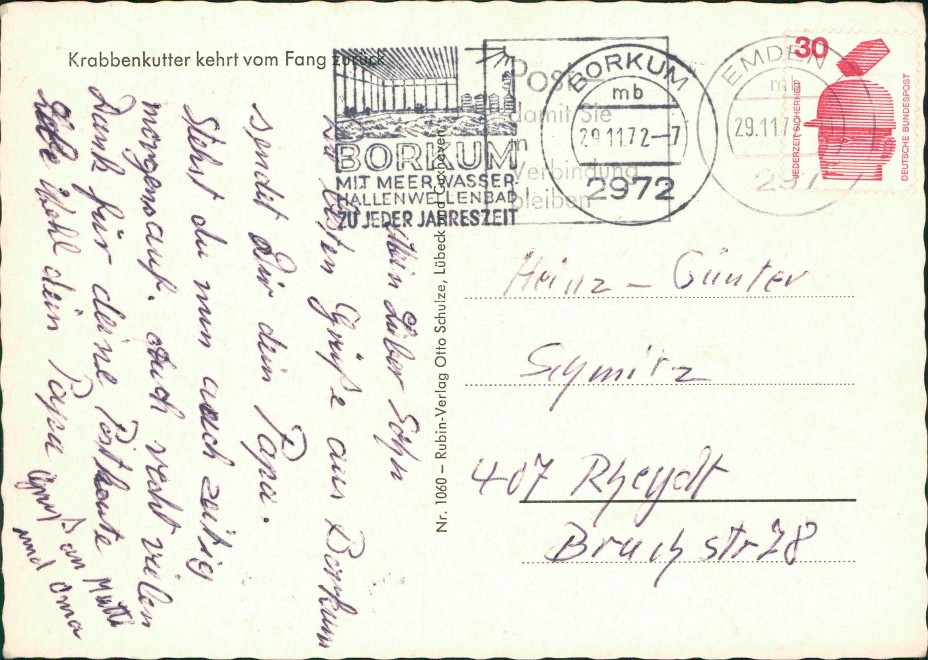 Krabbenkutter kehrt vom Fang zurück
BORKUM
MIT MEERWASSER-
HALLENWELLENBAD
ZU JEDER JAHRESZEIT
Post
damit Sie
in
Verbindung
bleiben
BORKUM
mb
29.11.72-7
2972
EMDEN
mb
29.11.7
297
30
JEDERZEIT SICHERHEIT
DEUTSCHE BUNDESPOST
Mein Lieber Sohn
Die besten Grüße aus Borkum
sendet Dir dein Papa.
Siehst du nun auch zeitig
morgens auf. Auch recht vielen
Dank für deine Postkarte
Lebe Wohl dein Papa
Gruß an Mutti
und Oma
Nr. 1060 – Rubin-Verlag Otto Schulze, Lübeck und Cuxhaven
Heinz – Günter
Schmitz
407 Rheydt
Bruchstr 78